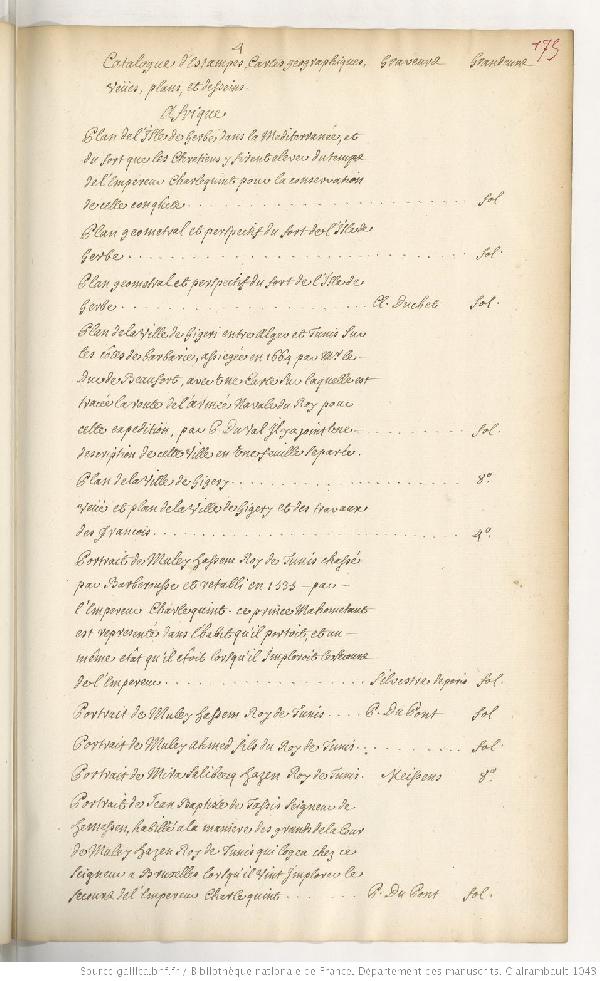 4
175
Catalogue d'Estampes, Cartes geographiques, Graveurs Grandeure
veües, plans, et desseins.
Afrique
Plan de l'Isle de Gerbe, dans la Mediterranée, et
du fort que les Chretiens y firent elever du temps
de l'Empereur Charlequint pour la conservation
de cette conqueste . . . fol
Plan geometral et perspectif du fort de l'Isle de
Gerbe . . . fol.
Plan geometral et perspectif du fort de l'Isle de
Gerbe . . . Cl. Duchet fol.
Plan de la Ville de Gigeri entre Alger et Tunis sur
les côtes de Barbarie, assiegée en 1664 par Mr. le
Duc de Beaufort, avec une Carte sur laquelle est
tracée la route de l'armée Navale du Roy pour
cette expedition, par P. Du Val Il y a joint une . . . fol.
description de cette Ville en une feuille separée.
Plan de la Ville de Gigery . . . 8°.
Veüe et plan de la Ville de Gigery et des travaux
des François . . . 4°.
Portrait de Muley Hassem Roy de Tunis chassé
par Barberousse et retabli en 1535 par
l'Empereur Charlequint. ce prince Mahometant
est representé dans l'habit qu'il portoit, et au
même etât qu'il etoit lorsqu'il Imploroit le secours
de l'Empereur . . . Silvestre de paris fol.
Portrait de Muley Hassem Roy de Tunis . . . P. Du Pont fol
Portrait de Muley ahmed fils du Roy de Tunis . . . fol.
Portrait de Hazen Roy de Tunis. Meissens 8°
Portrait de Jean Baptiste de Tassis Seigneur de
Hemessen, habillé a la maniere des grands de la Cour
de Muley Hazen Roy de Tunis qui logea chez ce
Seigneur a Bruxelles lorsqu'il vint Implorer le
secours de l'Empereur Charlequint . . . P. Du Pont fol.
Source gallica.bnf.fr / Bibliothèque nationale de France. Département des manuscrits. Clairambault 1043